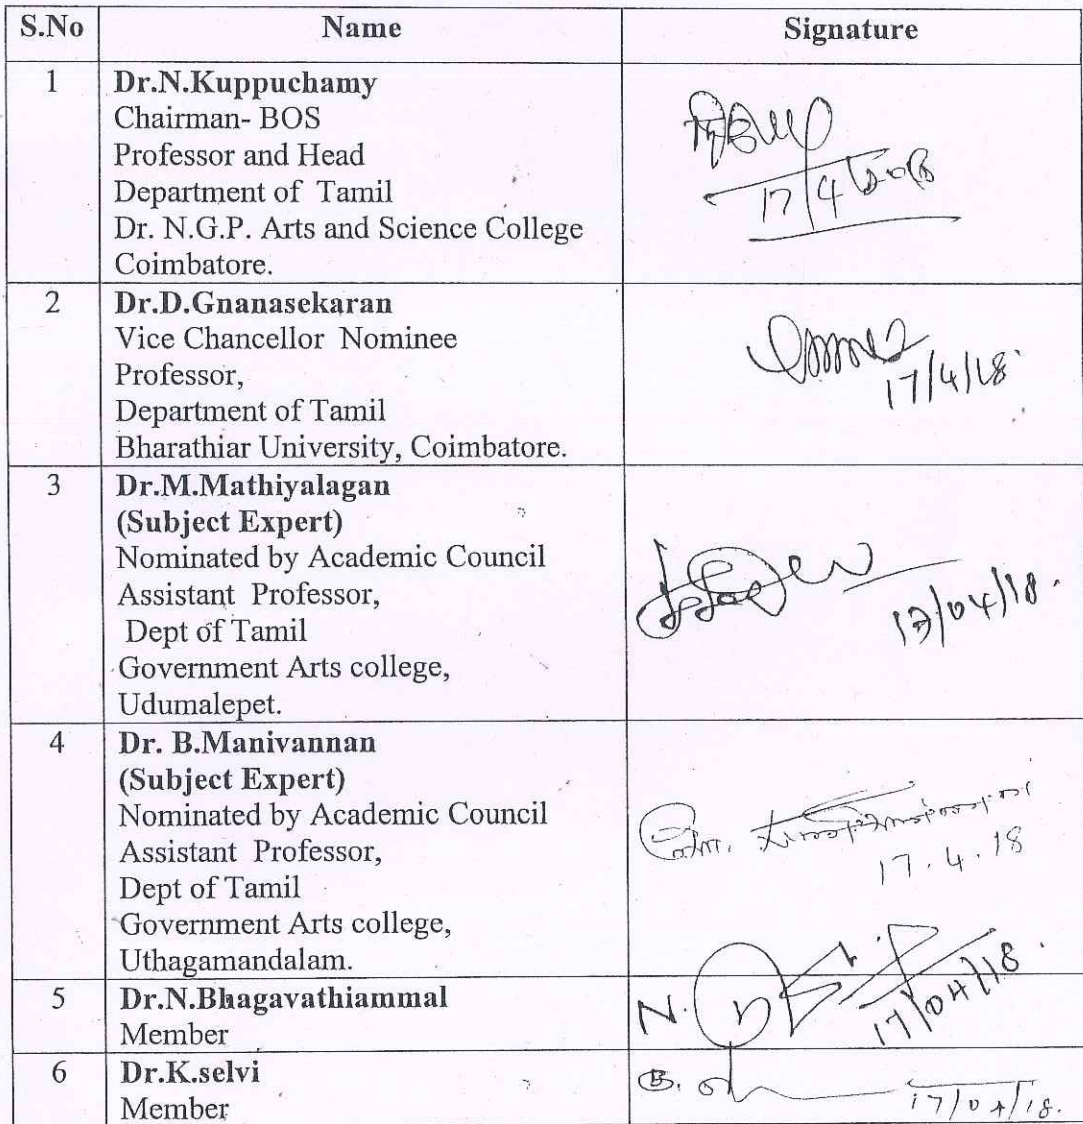 S.No Name Signature
1 Dr.N.Kuppuchamy
Chairman- BOS
Professor and Head
Department of Tamil
Dr. N.G.P. Arts and Science College
Coimbatore.
17/4/2018
2 Dr.D.Gnanasekaran
Vice Chancellor Nominee
Professor,
Department of Tamil
Bharathiar University, Coimbatore.
17/4/18
3 Dr.M.Mathiyalagan
(Subject Expert)
Nominated by Academic Council
Assistant Professor,
Dept of Tamil
Government Arts college,
Udumalepet.
17/04/18.
4 Dr. B.Manivannan
(Subject Expert)
Nominated by Academic Council
Assistant Professor,
Dept of Tamil
Government Arts college,
Uthagamandalam.
17.4.18
5 Dr.N.Bhagavathiammal
Member
N.
17/04/18.
6 Dr.K.selvi
Member
17/04/18.